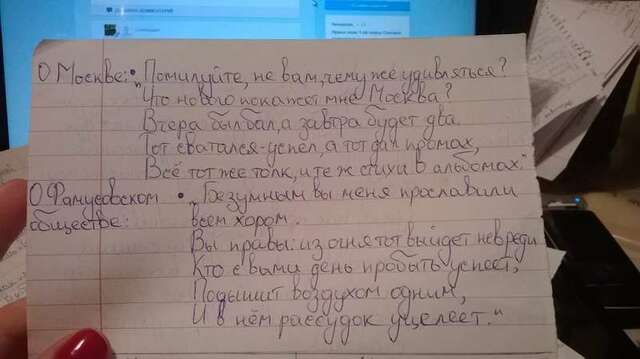 О Москве: • „Помилуйте, не вам, чему же удивляться?
Что нового покажет мне Москва?
Вчера был бал, а завтра будет два.
Тот сватался-успел, а тот дал промах,
Всё тот же толк, и те ж стихи в альбомах."
О Фамусовском обществе: • „Безумным вы меня прославили
всем хором.
Вы правы: из огня тот выйдет невредим
Кто с вами день пробыть успеет,
Подышит воздухом одним,
И в нём рассудок уцелеет."